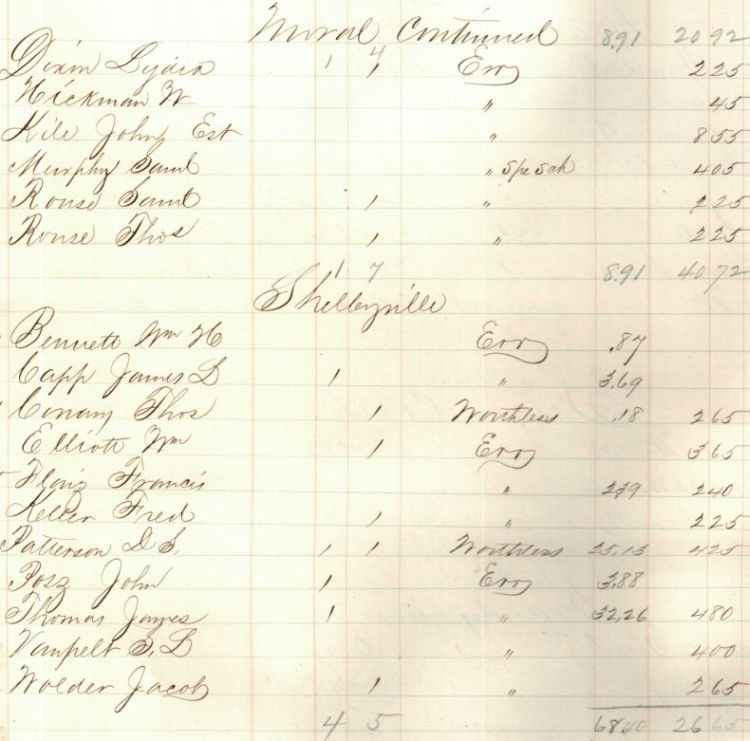 Moral Continued 8.91 20 92
1 4
Dixon Lydia 1 Err 2 25
Hickman W " 45
Kile John Est " 8 55
Murphy Saml " Spe Sch 4 05
Rouse Saml 1 " 2 25
Rouse Thos 1 " 2 25
1 7 8.91 40 72
Shelbyville
Bennett Wm H Err .87
Capp James L 1 " 3.69
Conary Thos 1 Worthless .18 2 65
Elliott Wm 1 Err 3 65
Francis " 2 39 2 40
Keller Fred 1 " 2 25
Patterson D S. 1 1 Worthless 25.13 4 25
Posz John 1 Err 3.88
Thomas James 1 " 32.26 4 80
Vanpelt S. L " 4 00
Wolder Jacob 1 " 2 65
4 5 68 40 26 65